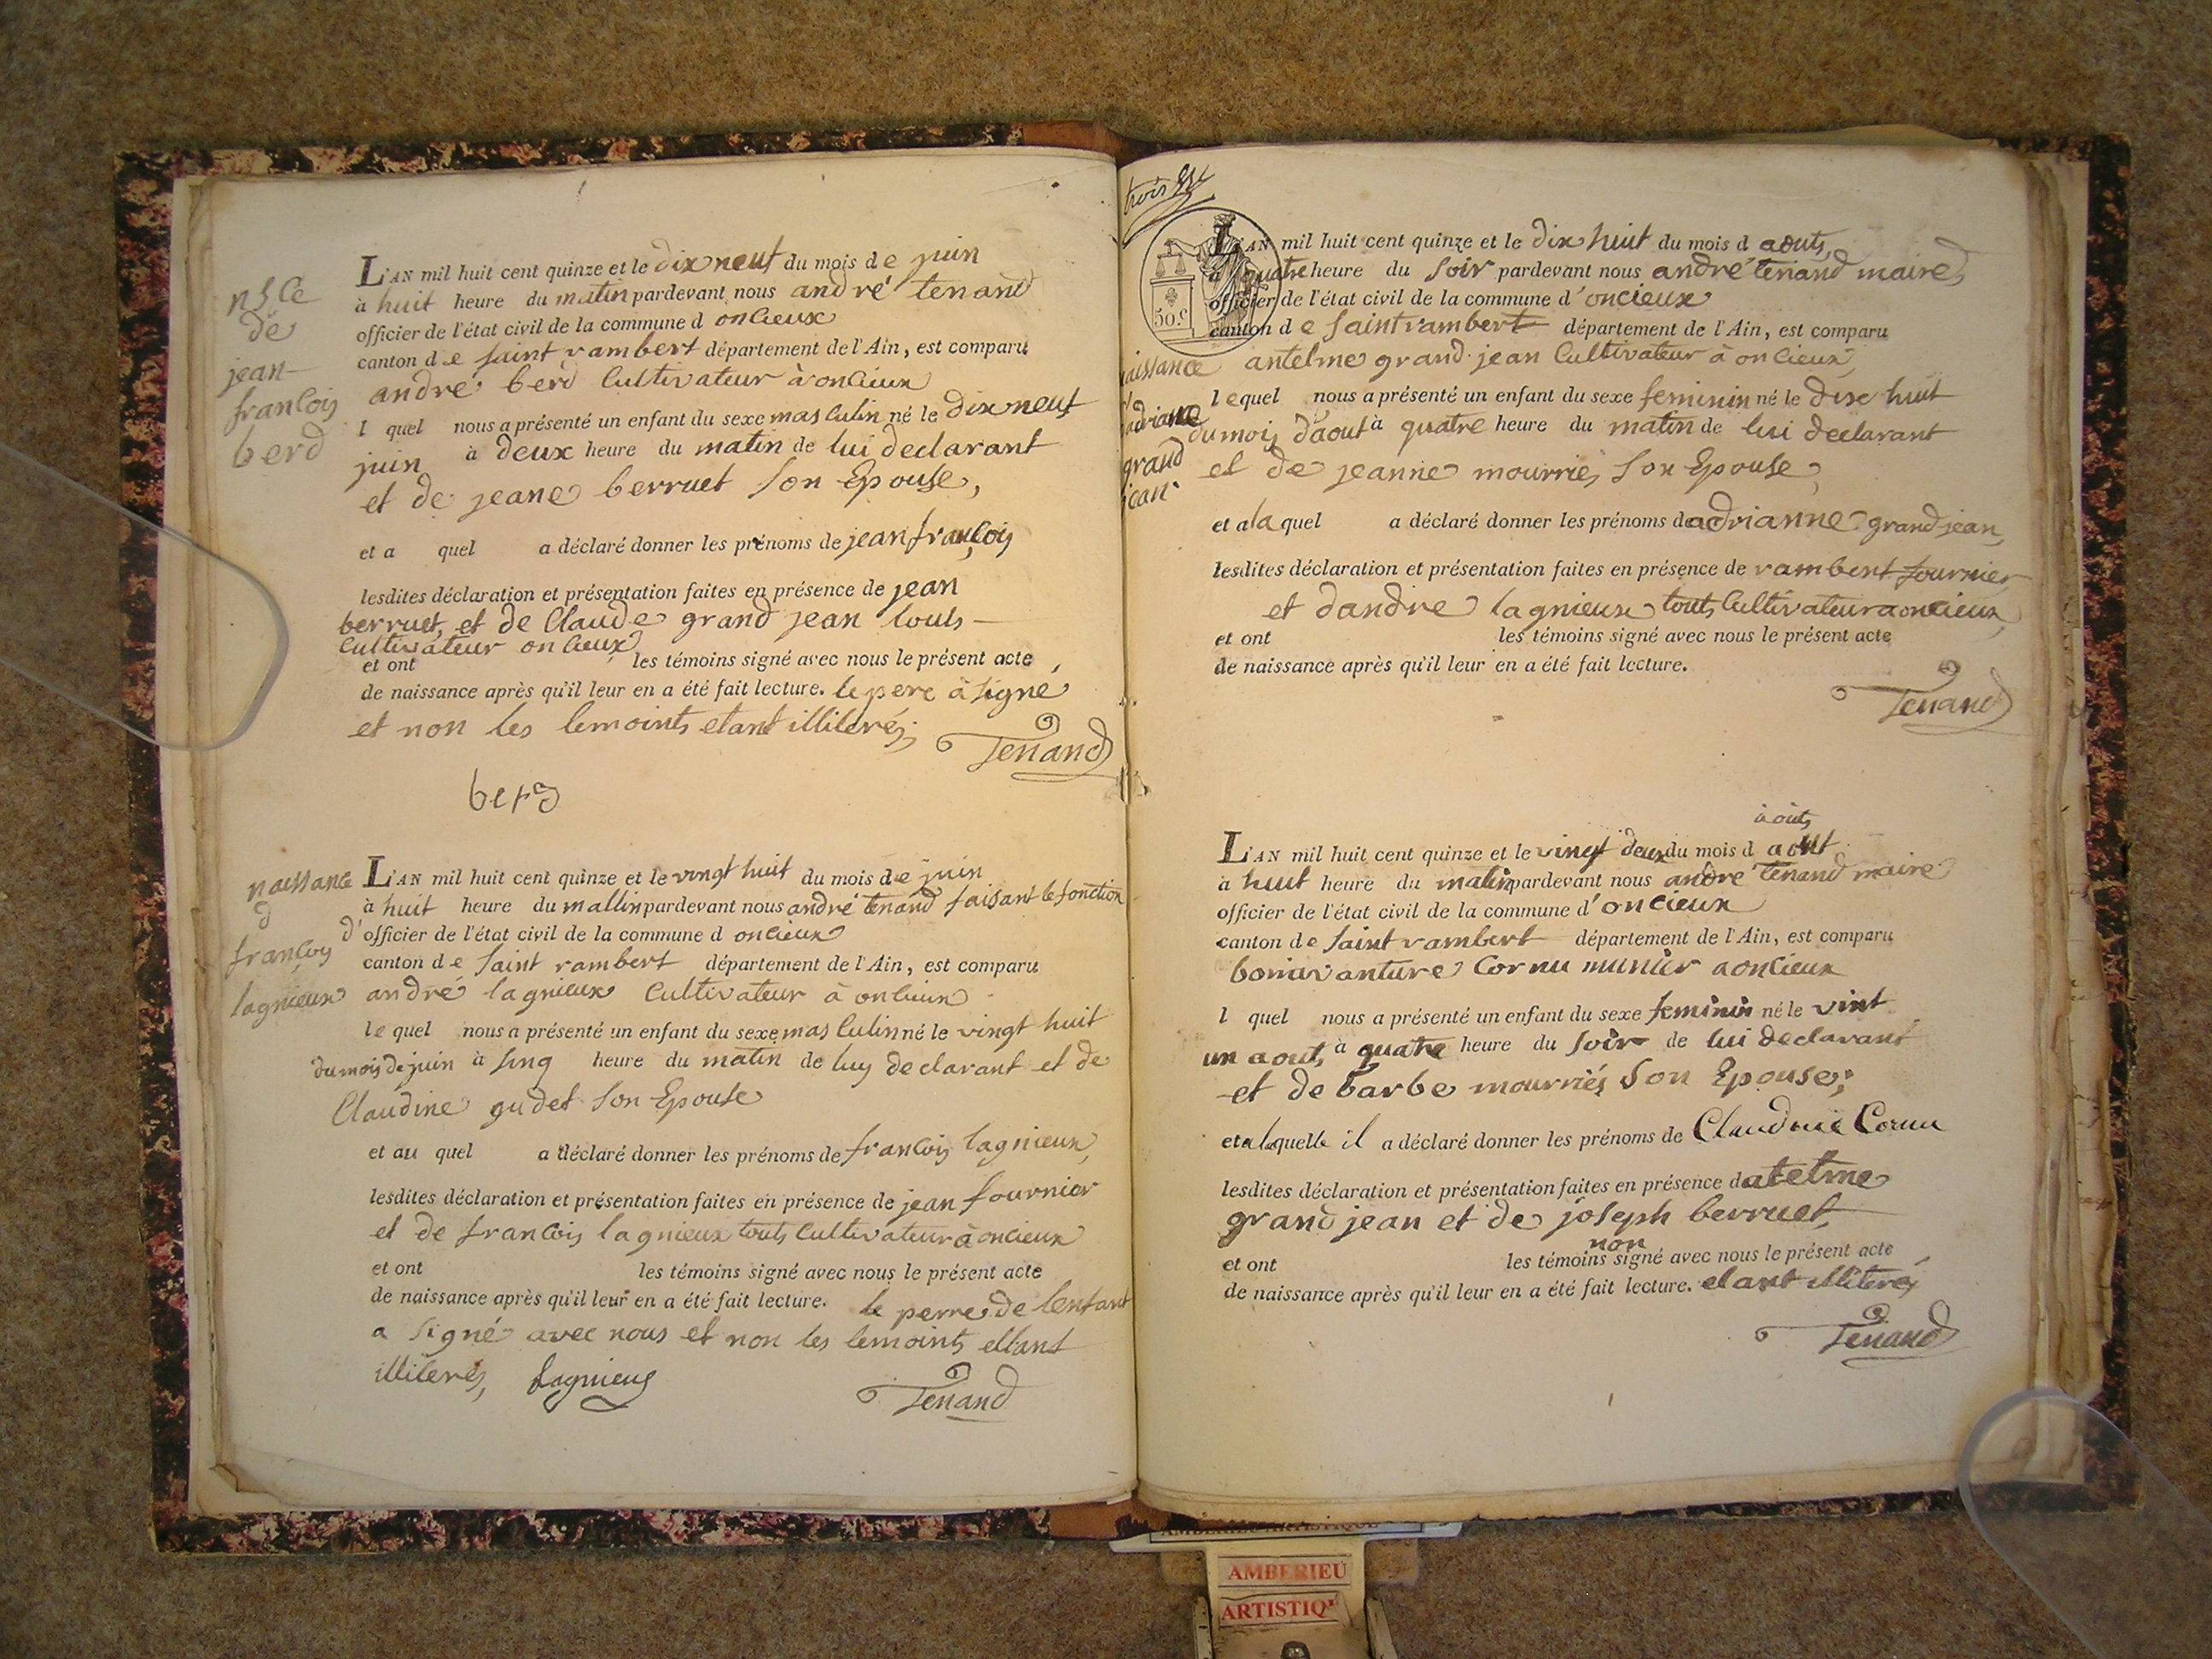 nsce
de
jean
françois
berd
L'AN mil huit cent quinze et le dix neuf du mois de juin
à huit heure du matin pardevant nous andré tenand
officier de l'état civil de la commune d oncieux
canton de saint rambert département de l'Ain, est comparu
andré berd cultivateur à oncieux
l quel nous a présenté un enfant du sexe masculin né le dix neuf
juin à deux heure du matin de lui declarant
et de jeane berruet son Epouse,
et a quel a déclaré donner les prénoms de jean françois
lesdites déclaration et présentation faites en présence de jean
berruet, et de Claude grand jean touts
cultivateur oncieux
et ont les témoins signé avec nous le présent acte
de naissance après qu'il leur en a été fait lecture. le pere à signé
et non les temoints etant illiterés
Tenand
berd
naissance
d
françois
lagnieux
L'AN mil huit cent quinze et le vingt huit du mois de juin
à huit heure du mattin pardevant nous andré tenand faisant le fonction
d'officier de l'état civil de la commune d oncieux
canton de saint rambert département de l'Ain, est comparu
andré lagnieux cultivateur à oncieux
le quel nous a présenté un enfant du sexe masculin né le vingt huit
du mois de juin à sinq heure du matin de luy declarant et de
Claudine gudet son Epouse
et au quel a déclaré donner les prénoms de françois lagnieux,
lesdites déclaration et présentation faites en présence de jean fournier
et de françois lagnieux touts cultivateur à oncieux
et ont les témoins signé avec nous le présent acte
de naissance après qu'il leur en a été fait lecture. le perre de lenfant
a signé avec nous et non les temoints ettant
illiterés, Lagnieux
Tenand
trois
50.c
L'AN mil huit cent quinze et le dix huit du mois d aouts,
à quatre heure du soir pardevant nous andré tenand maire
officier de l'état civil de la commune d'oncieux
canton de saint rambert département de l'Ain, est comparu
antelme grand jean cultivateur à oncieux,
lequel nous a présenté un enfant du sexe feminin né le dix huit
du mois daout à quatre heure du matin de lui declarant
et de jeanne mourriés son Epouse,
aissance
d'adrianne
grand
jean
et a la quel a déclaré donner les prénoms de adrianne grand jean,
lesdites déclaration et présentation faites en présence de rambert fournier
et dandre lagnieux touts cultivateur a oncieux,
et ont les témoins signé avec nous le présent acte
de naissance après qu'il leur en a été fait lecture.
Tenand
àouts
L'AN mil huit cent quinze et le vingt deux du mois d aout
à huit heure du matin pardevant nous andré tenand maire
officier de l'état civil de la commune d'oncieux
canton de saint rambert département de l'Ain, est comparu
bonavanture Cornu munier a oncieux
l quel nous a présenté un enfant du sexe feminin né le vint
un aout, à quatre heure du soir de lui declarant
et de barbe mourriés son Epouse;
et a laquelle il a déclaré donner les prénoms de Claudine Cornu
lesdites déclaration et présentation faites en présence d atelme
grand jean et de joseph berruet,
non
et ont les témoins signé avec nous le présent acte
de naissance après qu'il leur en a été fait lecture. etant illiterés
Tenand
AMBERIEU ARTISTIQUE
AMBERIEU
ARTISTIQ